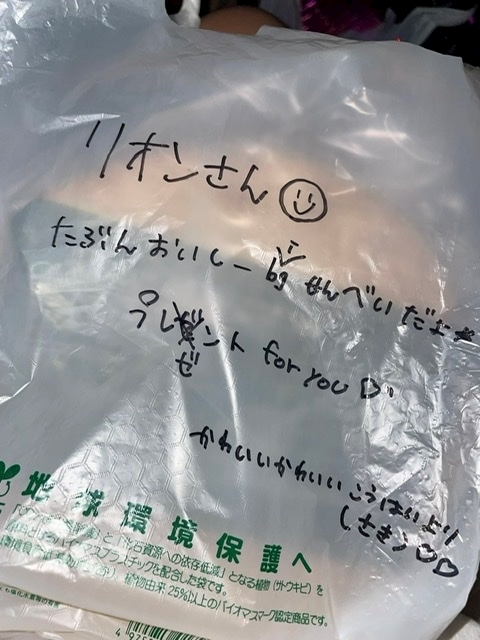 リオンさん
たぶんおいしー big せんべいだよ
プレゼント for you
かわいいかわいいこうはいより
しさきン♡♡
地球環境保護へ
と「化石資源への依存低減」となる植物(サトウキビ)を
バイオマスプラスチックを配合した袋です。
植物由来25%以上のバイオマスマーク認定商品です。